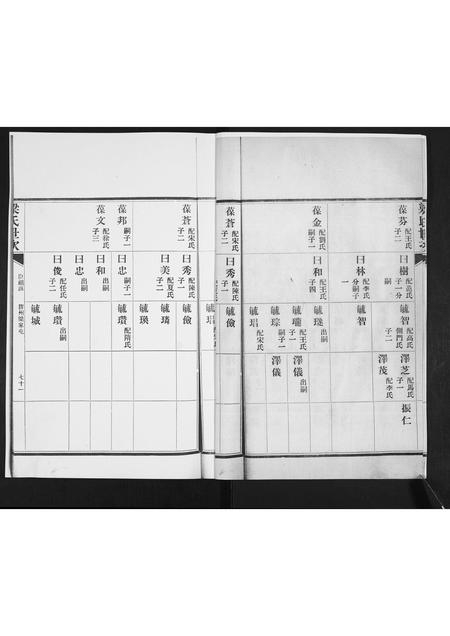 葆芬 配王氏 子二
曰樹 配范氏 子一分嗣
毓智 配高氏 側門氏 子二
澤芝 配馬氏 子一
振仁
澤茂 配李氏
曰林 配李氏 分嗣子一
毓智
葆金 配劉氏 嗣子一
曰和 配王氏 子四
毓璲 出嗣
毓瓏 配王氏 子一
澤儀 出嗣
毓琮 嗣子一
澤儀
毓琩 配宋氏
葆蒼 配宋氏 子二
曰秀 配陳氏 子一
毓儉
葆蒼 配宋氏 子二
曰秀 配陳氏 子一
毓儉
曰美 配夏氏 子二
毓璘
毓瑛
葆邦 嗣子一
曰忠 嗣子一
毓瓚 配隋氏
葆文 配徐氏 子三
曰和 出嗣
曰忠 出嗣
曰俊 配任氏 子二
毓瓚 出嗣
毓城
梁氏世次
七十一